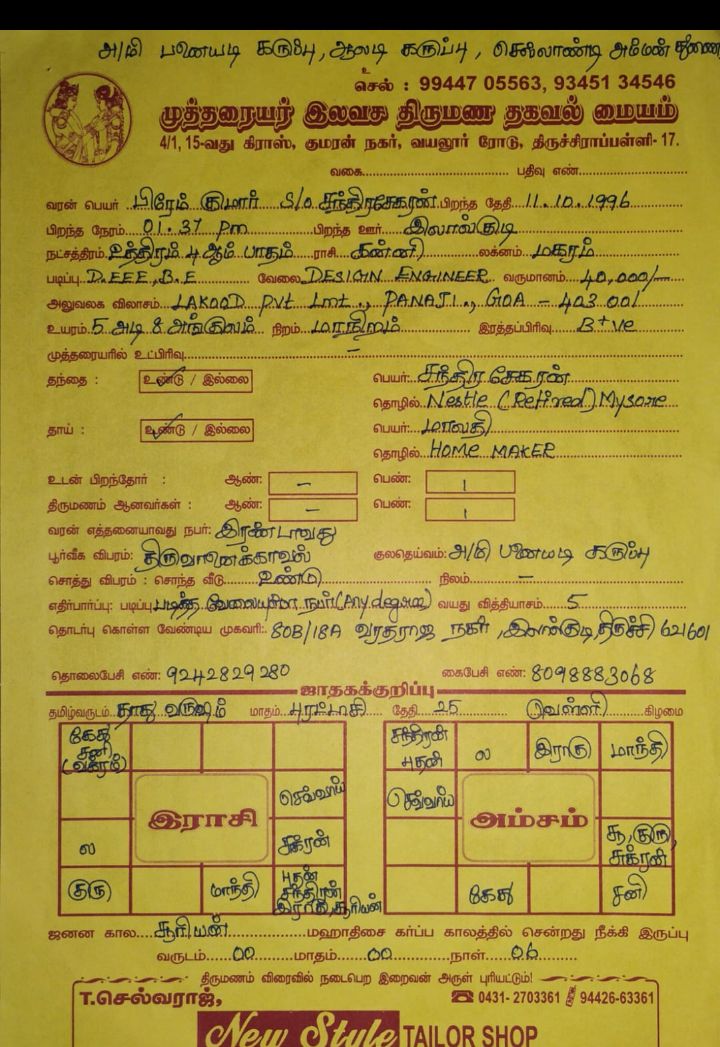 அ/மி பனையடி கருப்பு, ஆலடி கருப்பு, செல்லாண்டி அம்மன் துணை
உ
செல் : 99447 05563, 93451 34546
முத்தரையர் இலவச திருமண தகவல் மையம்
4/1, 15-வது கிராஸ், குமரன் நகர், வயலூர் ரோடு, திருச்சிராப்பள்ளி- 17.
வகை.................... பதிவு எண்....................
வரன் பெயர் பிரேம் குமார் S/o சந்திரசேகரன் பிறந்த தேதி 11.10.1996
பிறந்த நேரம் 01.37 pm பிறந்த ஊர் இலால்குடி
நட்சத்திரம் உத்திரம் 4 ஆம் பாதம் ராசி கன்னி லக்னம் மகரம்
படிப்பு D.EEE, B.E வேலை DESIGN ENGINEER வருமானம் 40,000/-
அலுவலக விலாசம் LAKOOD Pvt Lmt., PANAJI., GOA - 403 001
உயரம் 5 அடி 8 அங்குலம் நிறம் மாநிறம் இரத்தப்பிரிவு B+ve
முத்தரையரில் உட்பிரிவு -
தந்தை : உண்டு / இல்லை பெயர்: சந்திர சேகரன்
தொழில் Nestle (Retired) Mysore
தாய் : உண்டு / இல்லை பெயர்: மாலதி
தொழில் HOME MAKER
உடன் பிறந்தோர் : ஆண்: - பெண்: 1
திருமணம் ஆனவர்கள் : ஆண்: - பெண்: 1
வரன் எத்தனையாவது நபர்: இரண்டாவது
பூர்வீக விபரம்: திருவானைக்காவல் குலதெய்வம்: அ/மி பனையடி கருப்பு
சொத்து விபரம் : சொந்த வீடு உண்டு நிலம் -
எதிர்பார்ப்பு: படிப்பு படித்த வேலையுள்ள நபர் (Any degree) வயது வித்தியாசம் 5
தொடர்பு கொள்ள வேண்டிய முகவரி: 80B/18A வரதராஜ நகர், இலால்குடி, திருச்சி 621601
தொலைபேசி எண்: 9242829280 கைபேசி எண்: 8098883068
ஜாதகக்குறிப்பு
தமிழ்வருடம் தாது வருஷம் மாதம் புரட்டாசி தேதி 25 வெள்ளி கிழமை
கேது சனி (வக்ரம்) சந்திரன் புதன் ல இராகு மாந்தி
செவ்வாய் செவ்வாய்
இராசி அம்சம்
ல சுக்ரன் சூ, குரு, சுக்ரன்
குரு மாந்தி புதன் சந்திரன் இராகு, சூரியன் கேது சனி
ஜனன கால சூரியன் மஹாதிசை கர்ப்ப காலத்தில் சென்றது நீக்கி இருப்பு
வருடம் 00 மாதம் 00 நாள் 06
திருமணம் விரைவில் நடைபெற இறைவன் அருள் புரியட்டும்!
T.செல்வராஜ், 0431- 2703361 94426-63361
New Style TAILOR SHOP